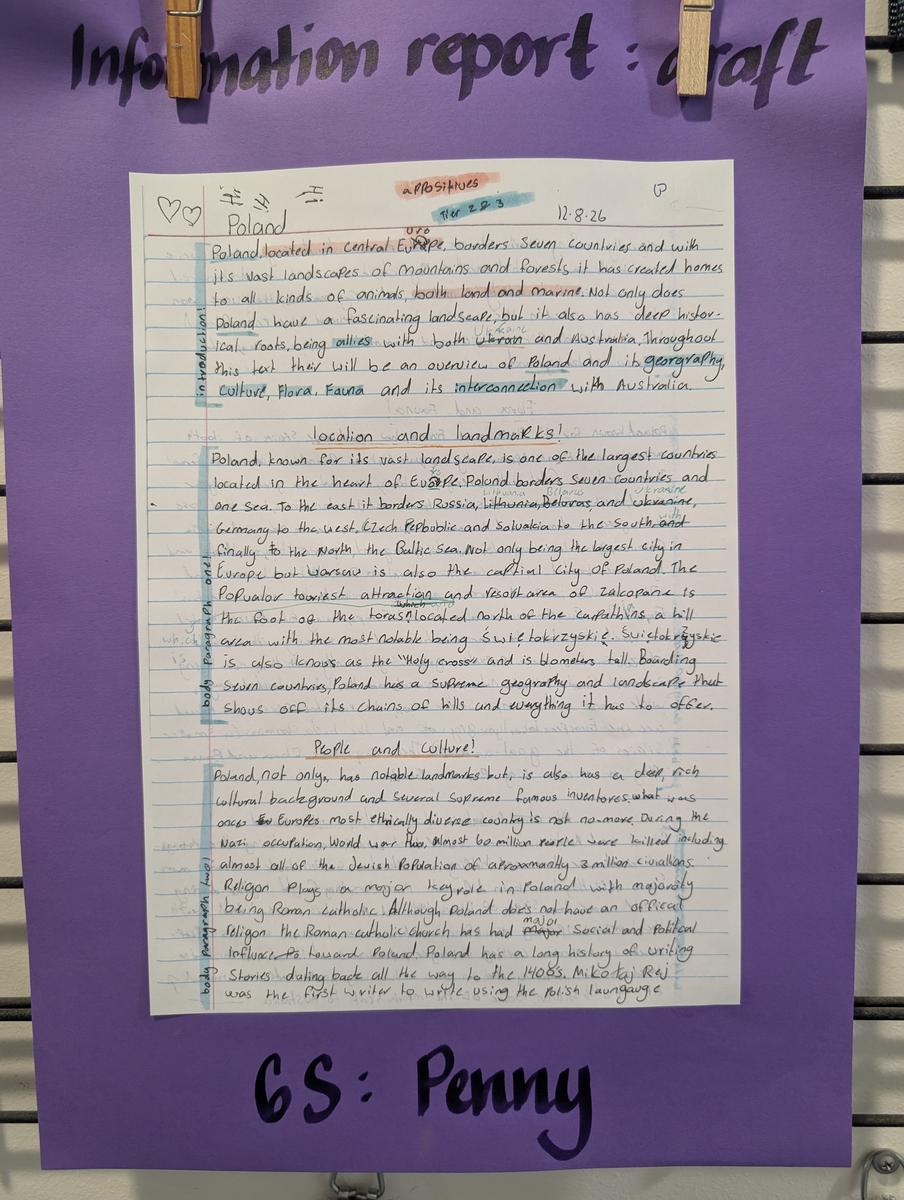 Information report : draft
appositives
Tier 2 & 3
Poland
12.8.26
uro
Poland, located in central Europe, borders seven countries and with
its vast landscapes of mountains and forests it has created homes
to all kinds of animals, both land and marine. Not only does
Poland have a fascinating landscape, but it also has deep histor-
Ukraine
ical roots, being allies with both Ukrain and Australia. Throughout
this text their will be an overview of Poland and its georgraphy,
Culture, Flora, Fauna and its interconnection with Australia.
introduction!
location and landmarks!
Poland, known for its vast landscape, is one of the largest countries
located in the heart of Europe. Poland borders seven countries and
Lithuania Belarus Ukraine
one sea. To the east it borders Russia, Lithunia, Beloras and Ukranine,
with
Germany to the west, Czech Repbublic and Solvakia to the South, and
finally to the North, the Baltic Sea. Not only being the largest city in
Europe but Warsaw is also the captial city of Poland. The
Popualor touriest attraction and resort area of Zalcopane is
which
the foot of the toras located north of the carpathins, a hill
area with the most notable being Świętokrzyskie. Świętokrzyskie
is also knows as the "Holy cross" and is blometers tall. Boarding
Seven countries, Poland has a supreme geography and landscape that
shows off its chains of hills and everything it has to offer.
body Paragraph one!
People and culture!
Poland, not only, has notable landmarks but, is also has a deep, rich
cultural background and several supreme famous inventores. what was
once Europes most ethically diverse country is not no-more. During the
Nazi occupation, World war two, Almost 60 million people were killed including
almost all of the Jewish Population of aproxmantly 3 million civiallions.
Religon Plays a major key role in Poland with majoraty
being Roman catholic. Although Poland does not have an offical
major
religon the Roman catholic church has had major Social and Politcal
Influnce to toward Poland. Poland has a long history of writing
Stories dating back all the way to the 1400s. Mikołaj Rej
was the first writer to write using the Polish laungauge
body Paragraph two!
6S: Penny